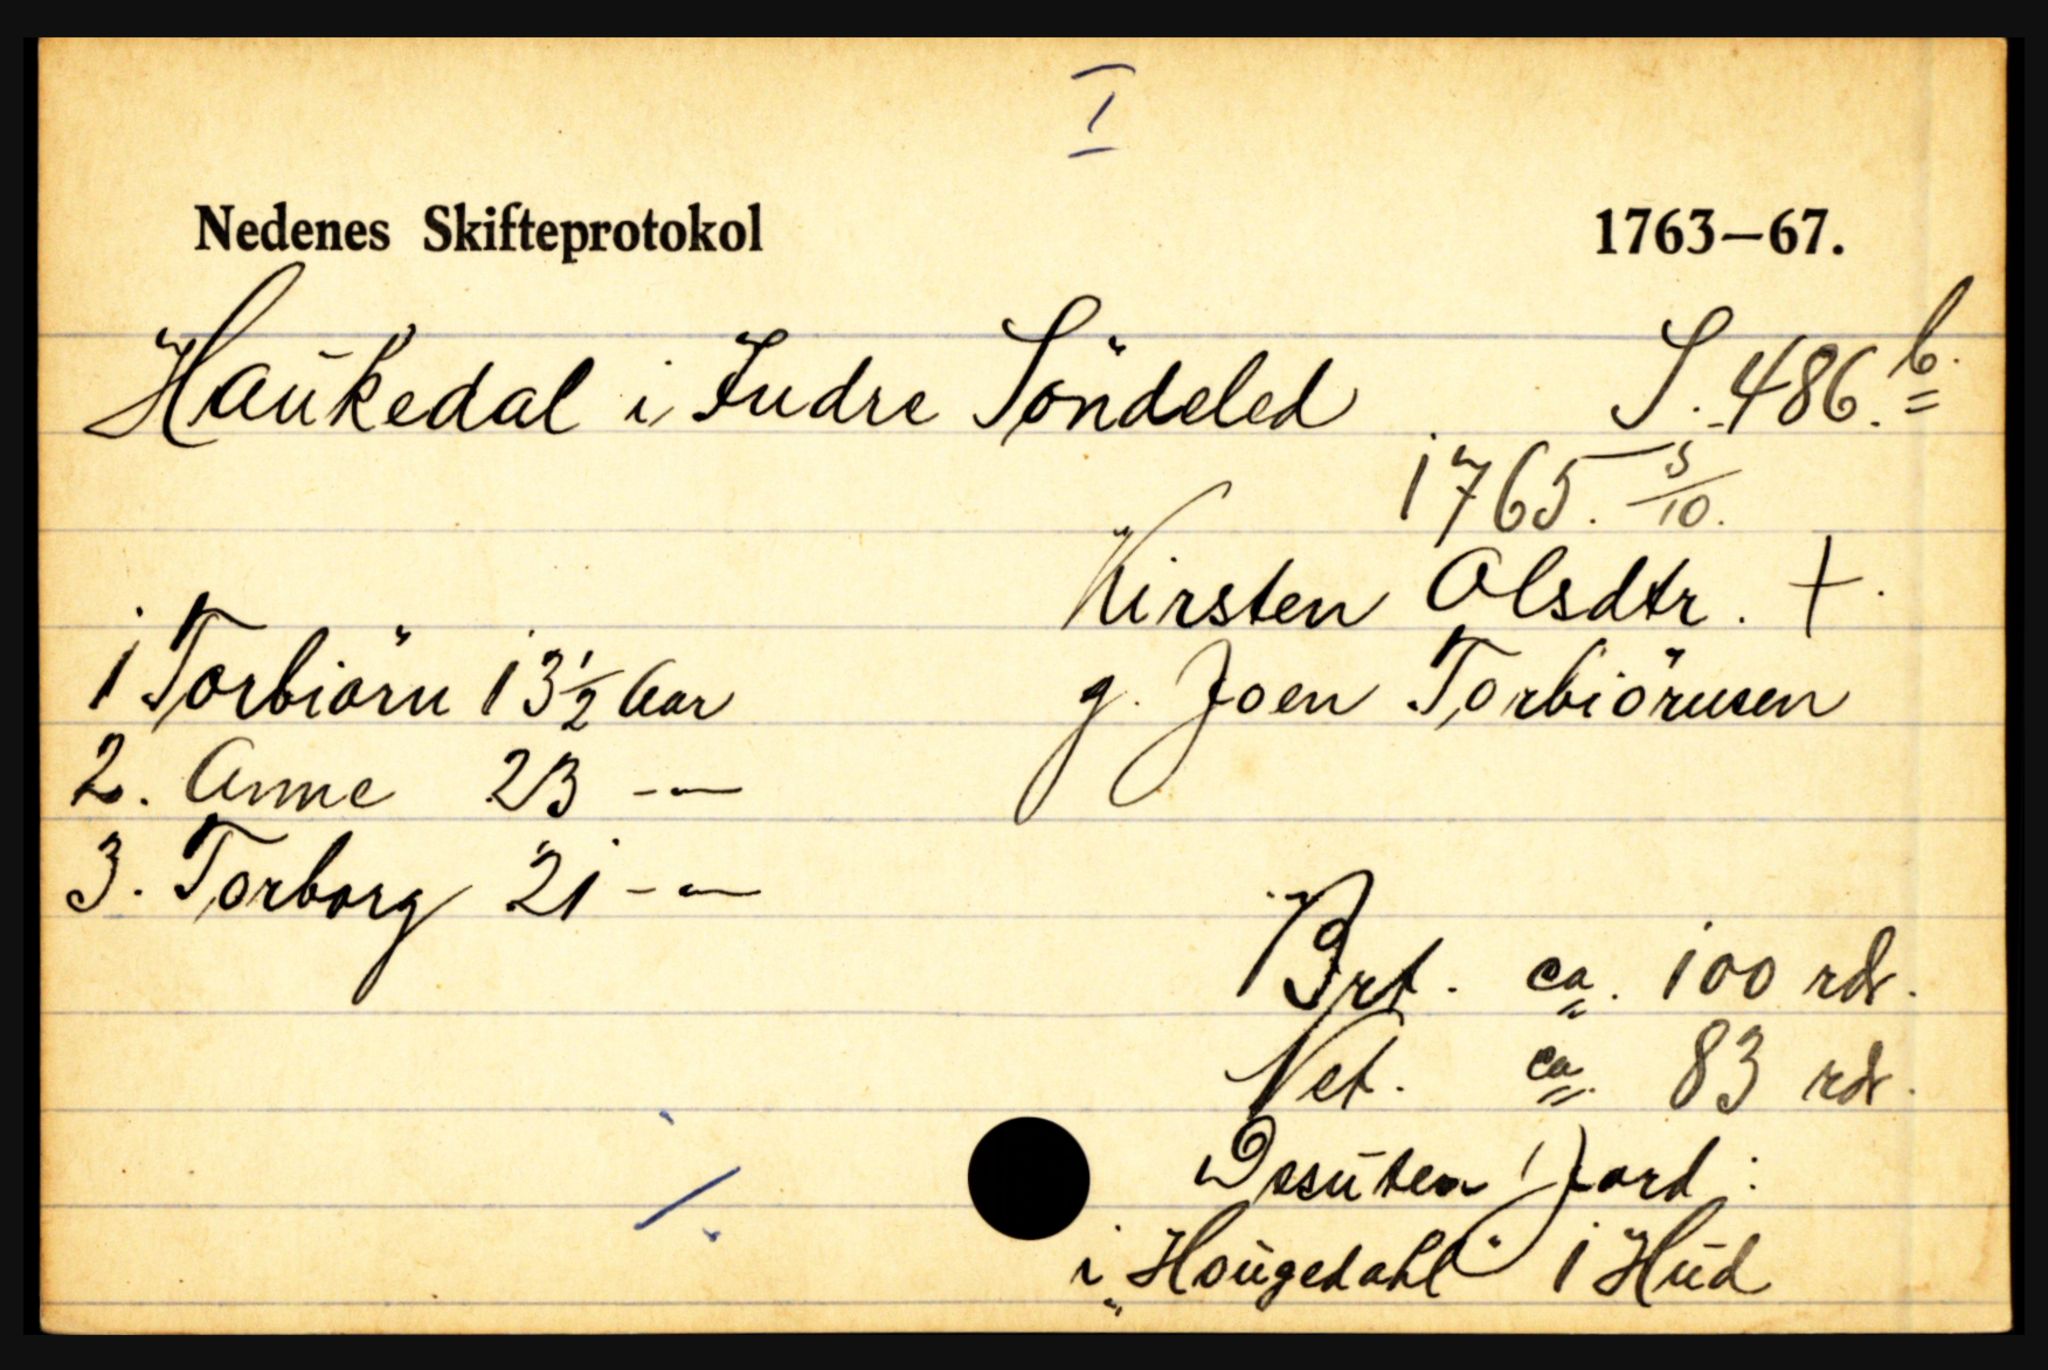 I
Nedenes Skifteprotokol 1763—67.
Haukedal i Indre Söndeled S. 486.b.
1765. 3/10.
Kirsten Olsdtr. +.
g. Joen Torbiörnsen
1 Torbiörn 13 1/2 Aar
2. Anne 23 -„-
3. Torborg 21 -„-
Brt. ca. 100 rdr.
Net. ca. 83 rdr.
Desuten Jord:
i „Hougedahl" 1 Hud